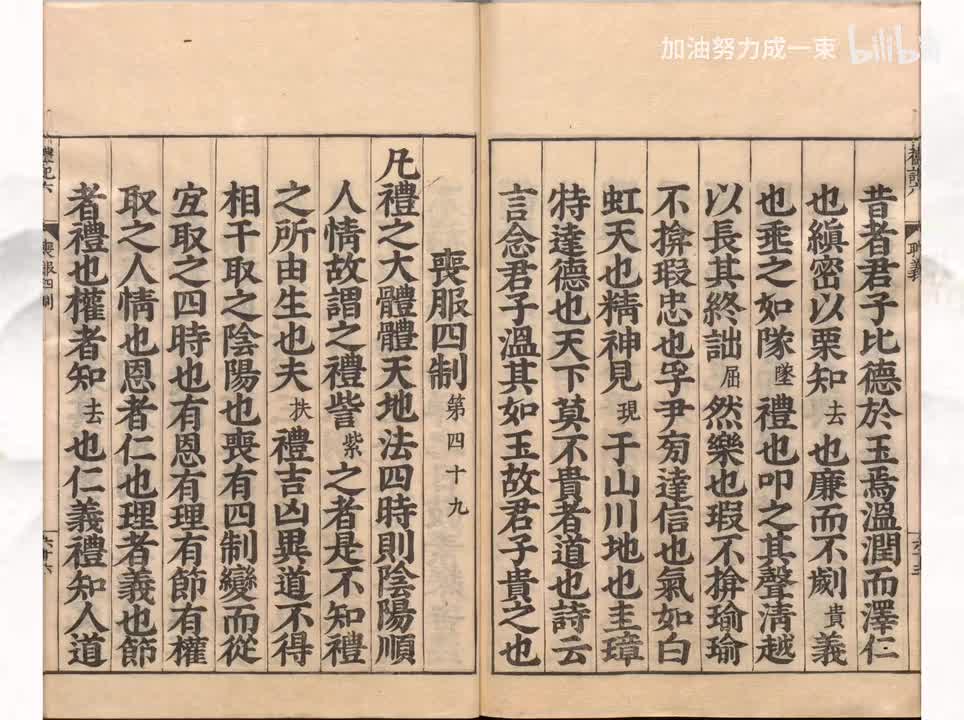 加油努力成一束 bilibili
禮記六 聘義
昔者君子比德於玉焉溫潤而澤仁
也縝密以栗知去也廉而不劌貴義
也垂之如隊墜禮也叩之其聲淸越
以長其終詘屈然樂也瑕不揜瑜瑜
不揜瑕忠也孚尹旁達信也氣如白
虹天也精神見現于山川地也圭璋
特達德也天下莫不貴者道也詩云
言念君子溫其如玉故君子貴之也
喪服四制第四十九
凡禮之大體體天地法四時則陰陽順
人情故謂之禮訾紫之者是不知禮
之所由生也夫扶禮吉凶異道不得
相干取之陰陽也喪有四制變而從
宜取之四時也有恩有理有節有權
取之人情也恩者仁也理者義也節
者禮也權者知去也仁義禮知人道
禮記六 喪服四制 六十六